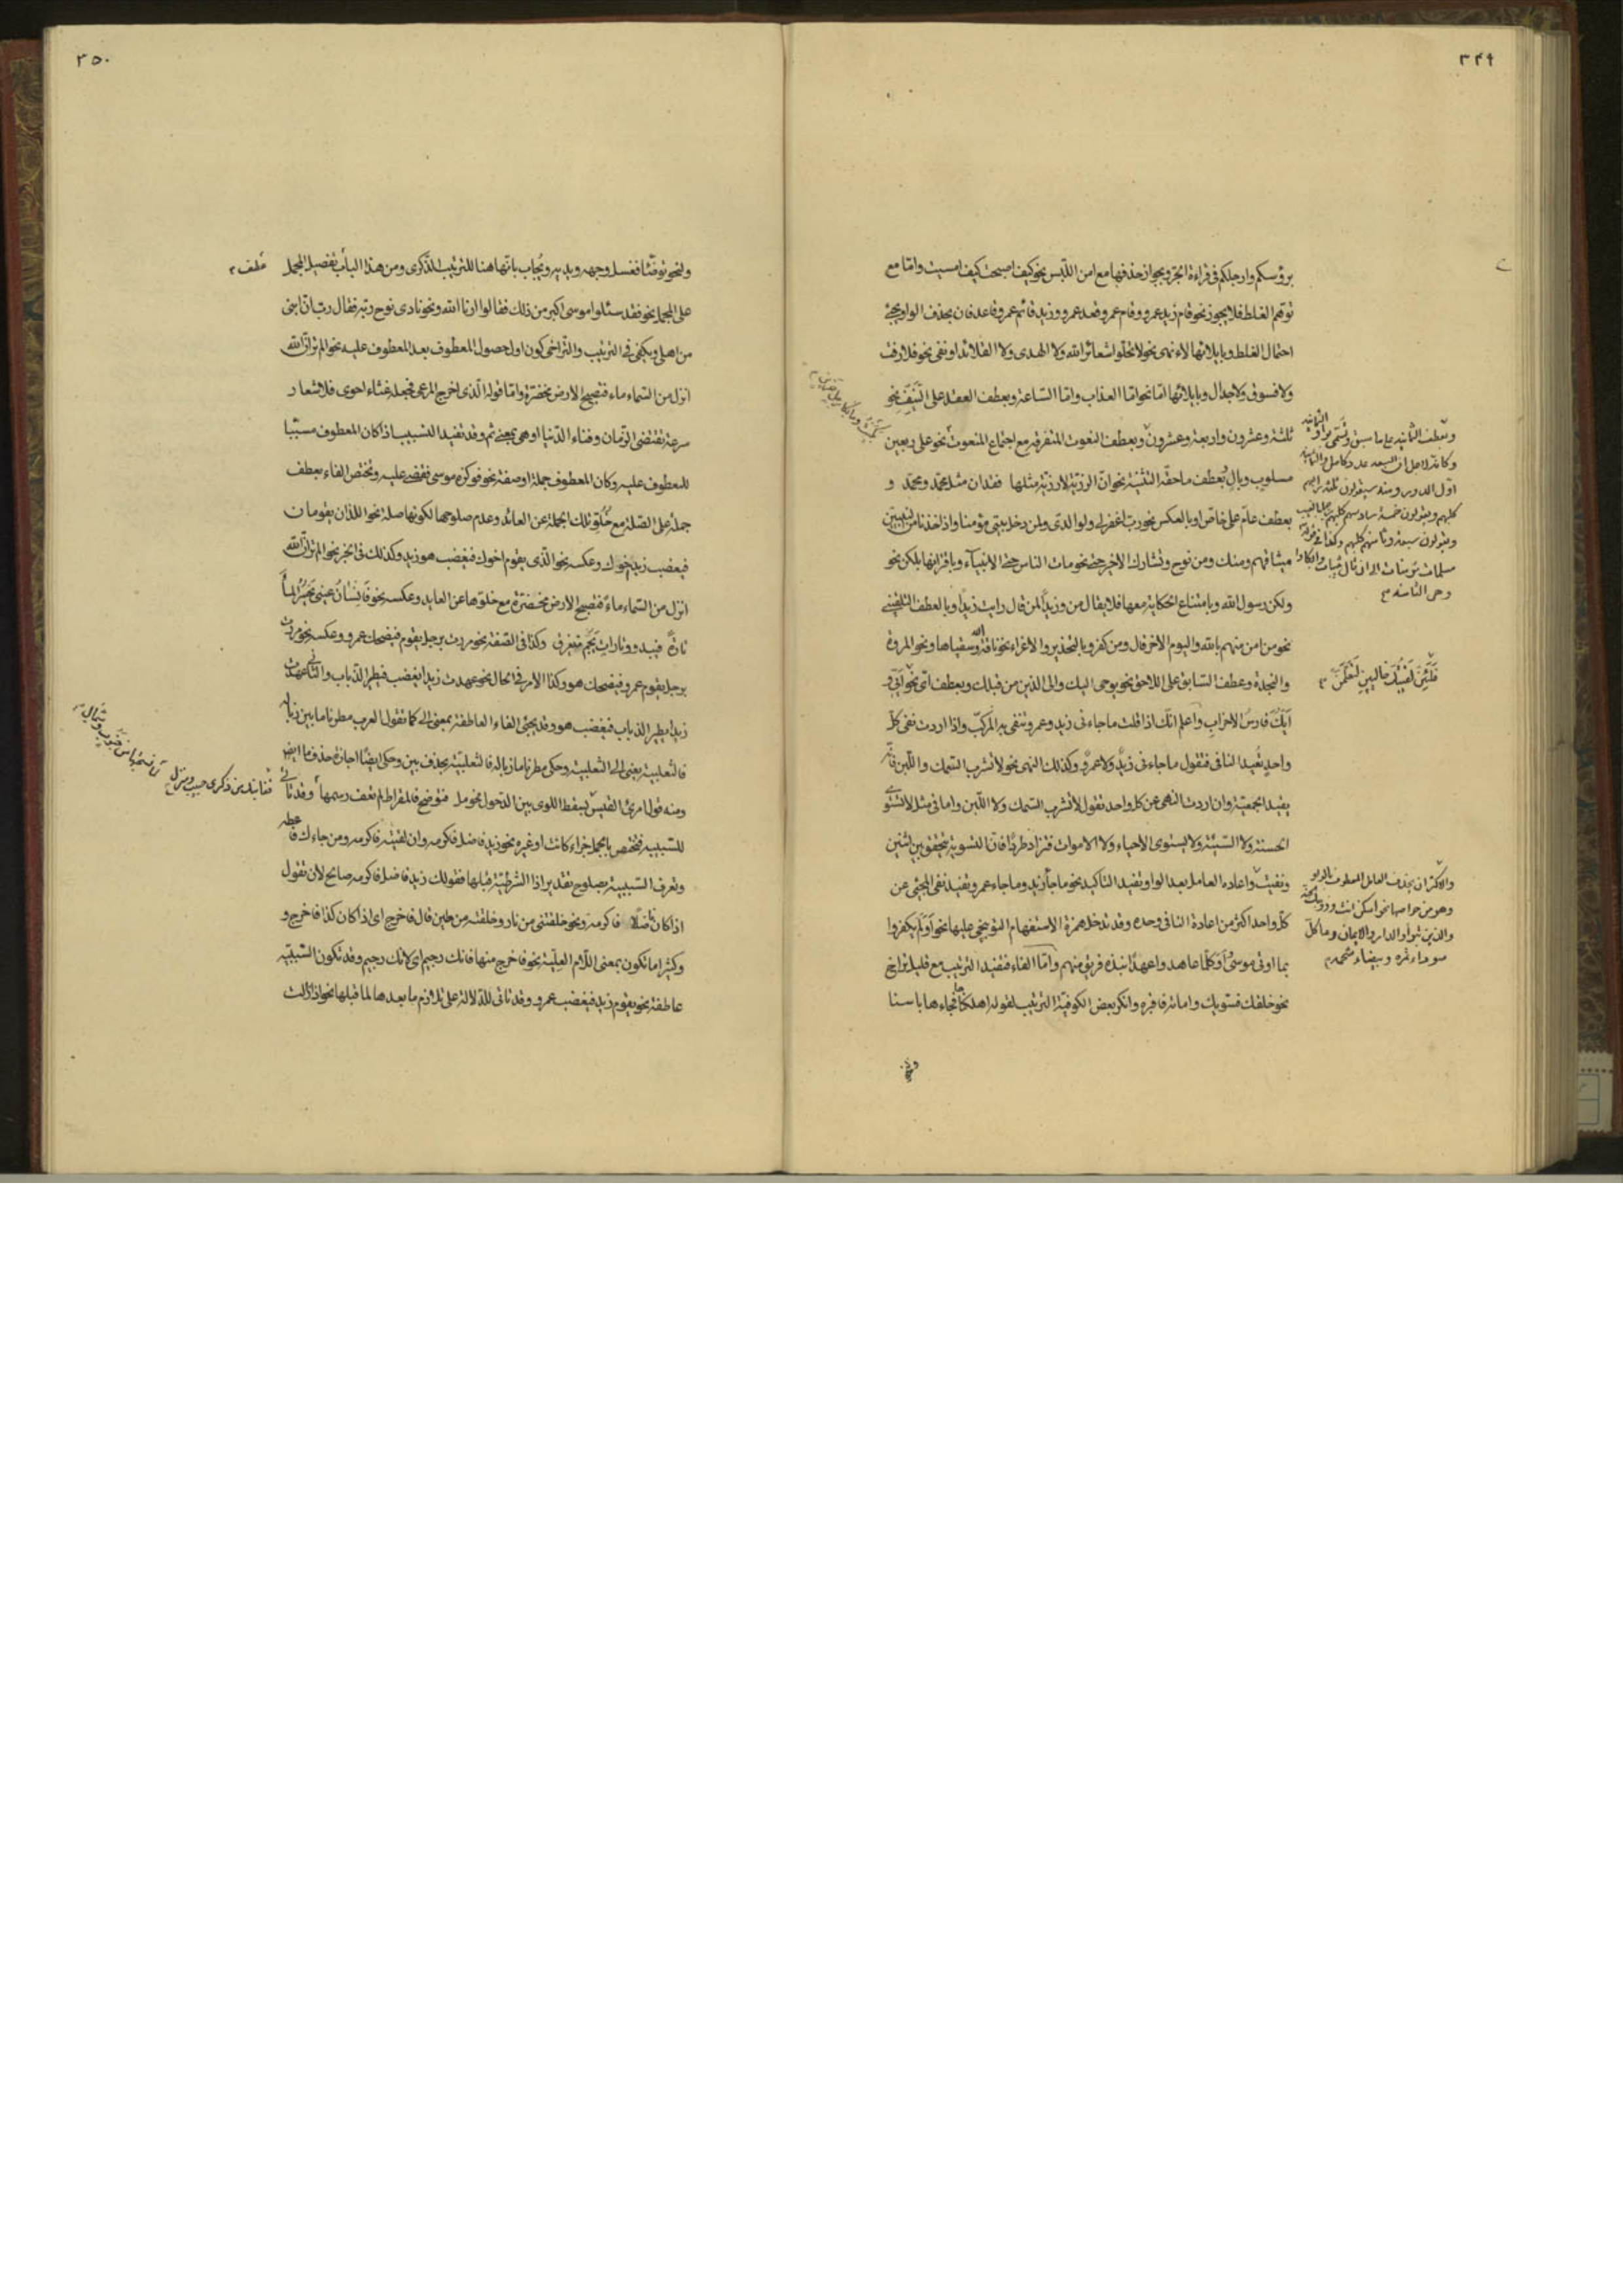 ٣٤٩
برؤسكم وارجلكم فى قراءة الجر وبجواز حذفها مع امن اللبس نحو كيف اصبحت كيف امسيت وامّا مع
توهّم الغلط فلا يجوز نحو قام زيد عمرو وقام عمرو قعد عمرو وزيد قائم عمرو قاعد فان بحذف الواو يجئ
احتمال الغلط وبايلائها لاء نهى نحو لا تحلّوا شعائر الله ولا الهدى ولا القلائد او نفى نحو فلا رفث
ولا فسوق ولا جدال وبايلائها امّا نحو امّا العذاب وامّا السّاعة وبعطف العقد على النيّف نحو
ثلثة وعشرون واربعة وعشرون وبعطف النعوت المتفرقه مع اجتماع المنعوت نحو على ربعين
مسلوب وبال وبعطف ما حقّه التثنية نحو انّ الرزيّة لا رزيّة مثلها فقدان مثل محمّد ومحمّد و
بعطف عامّ على خاصّ او بالعكس نحو ربّ اغفر لى ولوالدىّ ولمن دخل بيتى مؤمنا واذ اخذنا من النبيين
ميثاقهم ومنك ومن نوح وتشارك الاخير حتى نحو مات الناس حتى الانبياء وباقترانها بلكن نحو
ولكن رسول الله وبامتناع الحكاية معها فلا يقال من وزيدًا لمن قال رايت زيدًا وبالعطف التلقينى
نحو من امن منهم بالله واليوم الاخر قال ومن كفر وبالتحذير والاغراء نحو ناقة الله وسقياها ونحو المروة
والنجدة وعطف السّابق على اللاحق نحو يوحى اليك والى الذين من قبلك وبعطف اىّ نحو ايّى و
ايّك فارسُ الاحزاب واعلم انّك اذا قلت ما جاءنى زيد وعمرو تنفى به المركّب واذا اردت نفى كلّ
واحدٍ تُعيد النافى فتقول ما جاءنى زيدٌ ولا عمرٌو وكذلك النهى نحو لا تشرب السّمك واللّبن فانّه
يفيد الجمعيّة وان اردت النهى عن كل واحد تقول لا تشرب السّمك ولا اللّبن وامّا فى مثل لا تستوى
الحسنة ولا السّيّئة ولا يستوى الاحياء ولا الاموات فتزاد طردًا فانّ التسوية يتحقّق بين اثنين
ونفيت واعاده العامل بعد الواو تفيد التاكيد نحو ما جاء زيد وما جاء عمرو تفيد نفى المجئ عن
كلّ واحد اكثر من اعادة النافى وحده وقد تدخل همزة الاستفهام التوبيخى عليها نحو اَوَلم يكفروا
بما اوتى موسى اَوَكلّما عاهدوا عهدًا نبذه فريق منهم وامّا الفاء فتفيد الترتيب مع قليل تراخ
نحو خلقك فسويك واماته فاقبره وانكر بعض الكوفيّة الترتيب لقوله اهلكناها فجاءها باسنا
وتعطف الثانيه على ما سبق وتسمّى واو الثمانيه
كلبهم ويقولون خمسة سادسهم كلبهم رجما بالغيب
ويقولون سبعة وثامنهم كلبهم وكذا فى قوله
مسلمات مؤمنات الى ان قال ثيبات وابكارا
والاكثر ان يحذف العامل المعطوف بالواو
وهو من خواصها نحو اسكن انت وزوجك الجنّة
والذين تبوّاو الدار والايمان وما كلّ
سوداء تمرة وبيضاء شحمه
٣٥٠
ولنحو توضّأ فغسل وجهه ويديه ويُجاب بانّها هنا للترتيب الذّكرى ومن هذا الباب تفصيل المجمل
على المجمل نحو فقد سئلوا موسى اكبر من ذلك فقالوا ارنا الله ونحو نادى نوح ربّه فقال ربّ انّ ابنى
من اهلى ويكفى فى الترتيب والتراخى كون اول حصول المعطوف بعد المعطوف عليه نحو الم تر انّ الله
انزل من السّماء ماء فتصبح الارض مخضرّة وامّا قوله الّذى اخرج المرعى فجعله غثاء احوى فلاشعار
سرعة تقتضى الزّمان وفناء الدّنيا او هى بمعنى ثم وقد تفيد التسبيب اذا كان المعطوف مسبّبا
للمعطوف عليه وكان المعطوف جملة او صفة نحو فوكزه موسى فقضى عليه وتختص الفاء بعطف
جملة على الصّلة مع خُلوّ تلك الجملة عن العائد وعدم صلوحها لكونها صلة نحو اللذان يقومان
فيغضب زيد اخوك وعكسه نحو الذى يقوم اخوك فيغضب هو زيد وكذلك فى الخبر نحو الم تر انّ الله
انزل من السّماء ماءً فتصبح الارض مخضرّة مع خلوّها عن العايد وعكسه نحو فانسان عينى يحسُرُ الماء
تارةً فيبدو وتاراتٍ يَجُمّ فيغرق وكذا فى الصّفة نحو مررت برجل يقوم فيضحك عمرو وعكسه نحو مررت
برجل يقوم عمرو فيضحك هو وكذا الامر فى الحال نحو عهدت زيدا يغضب فيطير الذّباب والثانى عهدت
زيدا يطير الذباب فيغضب هو وقد يجئ الفاء العاطفة بمعنى الى كما تقول العرب مطرنا ما بين زبالة
فالثعلبيّة بمعنى الى الثعلبيّة وحكى مطرنا ما زباله فالثعلبيّة بحذف بين وحكى ايضًا اجازة حذف ما ايضا
ومنه قول امرئ القيس بسقط اللوى بين الدّخول فحومل فتوضح فالمقراط لم تعف رسمها وقد تاتى
للسّببيه فتختص بالجمل جزاء كانت او غيره نحو زيد فاضل فاكرمه وان لقيته فاكرمه ومن جاءك فاعطه
وتعرف السّببيّة بصلوح تقدير اذا الشرطيّة قبلها فقولك زيد فاضل فاكرمه صالح لان تقول
اذا كان فاضلًا فاكرمه ونحو خلقتنى من نار وخلقته من طين قال فاخرج اى اذا كان كذا فاخرج و
وكثيرا ما تكون بمعنى اللّام العلّيّة نحو فاخرج منها فانك رجيم اى لانك رجيم وقد تكون السّببيّه
عاطفة نحو يقوم زيد فيغضب عمرو وقد تاتى للدّلالة على تلازم ما بعدها لما قبلها نحو اذا زلت
قفا نبك من ذكرى حبيب ومنزل